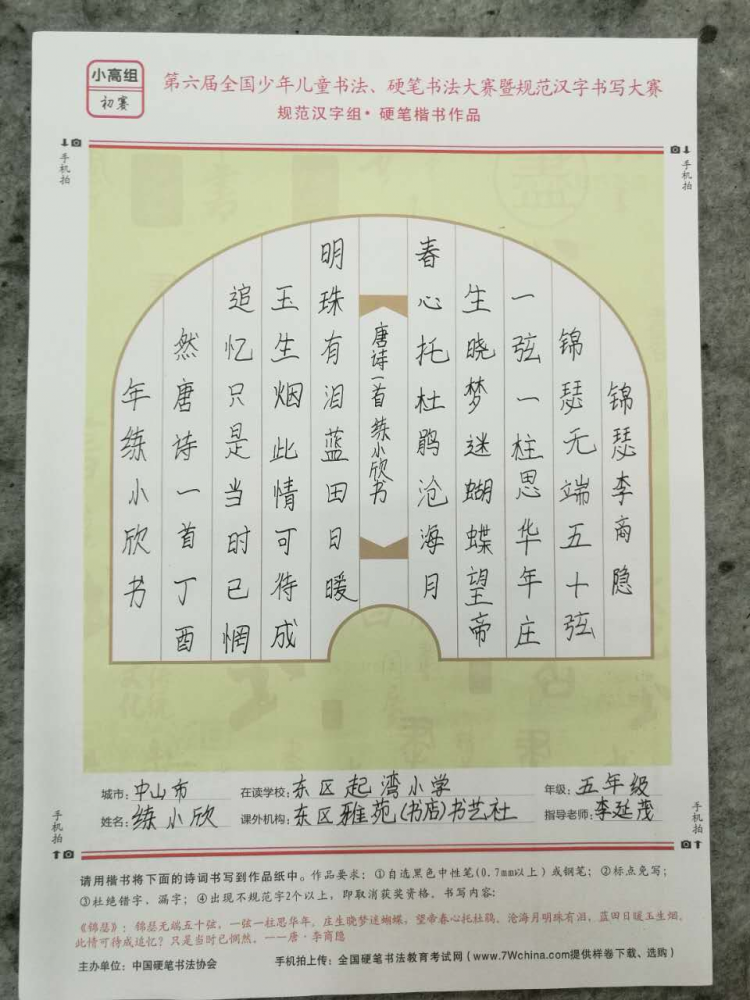 小高组
初赛
第六届全国少年儿童书法、硬笔书法大赛暨规范汉字书写大赛
规范汉字组·硬笔楷书作品
手机拍
手机拍
锦瑟李商隐
锦瑟无端五十弦
一弦一柱思华年庄
生晓梦迷蝴蝶望帝
春心托杜鹃沧海月
唐诗一首 练小欣书
明珠有泪蓝田日暖
玉生烟此情可待成
追忆只是当时已惘
然唐诗一首丁酉
年练小欣书
城市：中山市 在读学校：东区起湾小学 年级：五年级
姓名：练小欣 课外机构：东区雅苑(书店)书艺社 指导老师：李延茂
手机拍
手机拍
请用楷书将下面的诗词书写到作品纸中。作品要求：①自选黑色中性笔(0.7mm以上)或钢笔；②标点免写；
③杜绝错字、漏字；④出现不规范字2个以上，即取消获奖资格。书写内容：
《锦瑟》：锦瑟无端五十弦，一弦一柱思华年。庄生晓梦迷蝴蝶，望帝春心托杜鹃。沧海月明珠有泪，蓝田日暖玉生烟。
此情可待成追忆？只是当时已惘然。——唐·李商隐
主办单位：中国硬笔书法协会 手机拍上传：全国硬笔书法教育考试网（www.7Wchina.com提供样卷下载、选购）